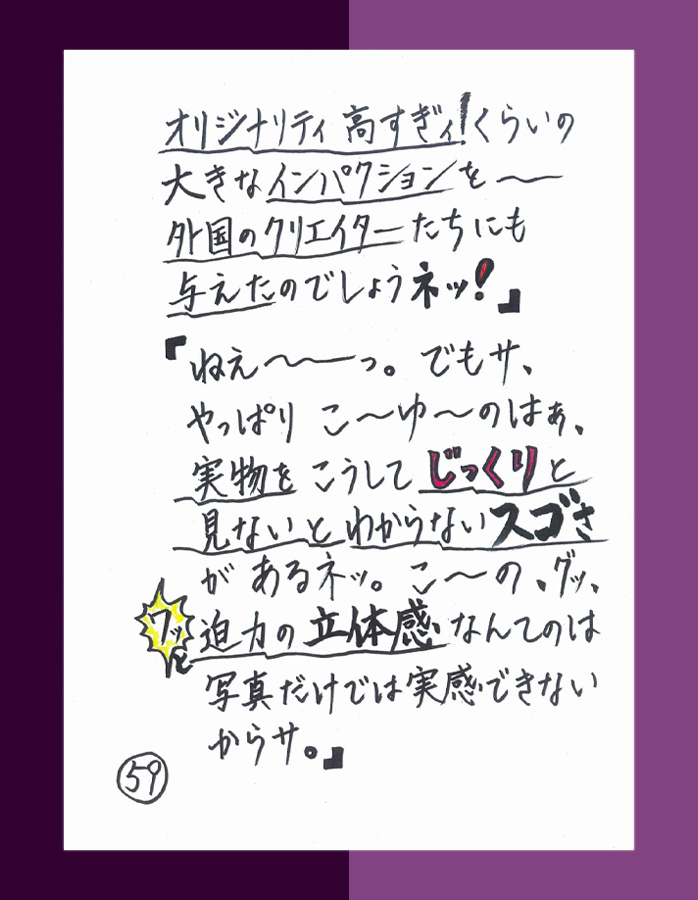 オリジナリティ高すぎィ!くらいの
大きなインパクションを〜
外国のクリエイターたちにも
与えたのでしょうネッ!』
『ねえ〜〜っ。でもサ、
やっぱりこ〜ゆ〜のはぁ、
実物をこうしてじっくりと
見ないとわからないスゴさ
があるネッ。こ〜の、グッ、
ワッと迫力の立体感なんてのは
写真だけでは実感できない
からサ。』
59